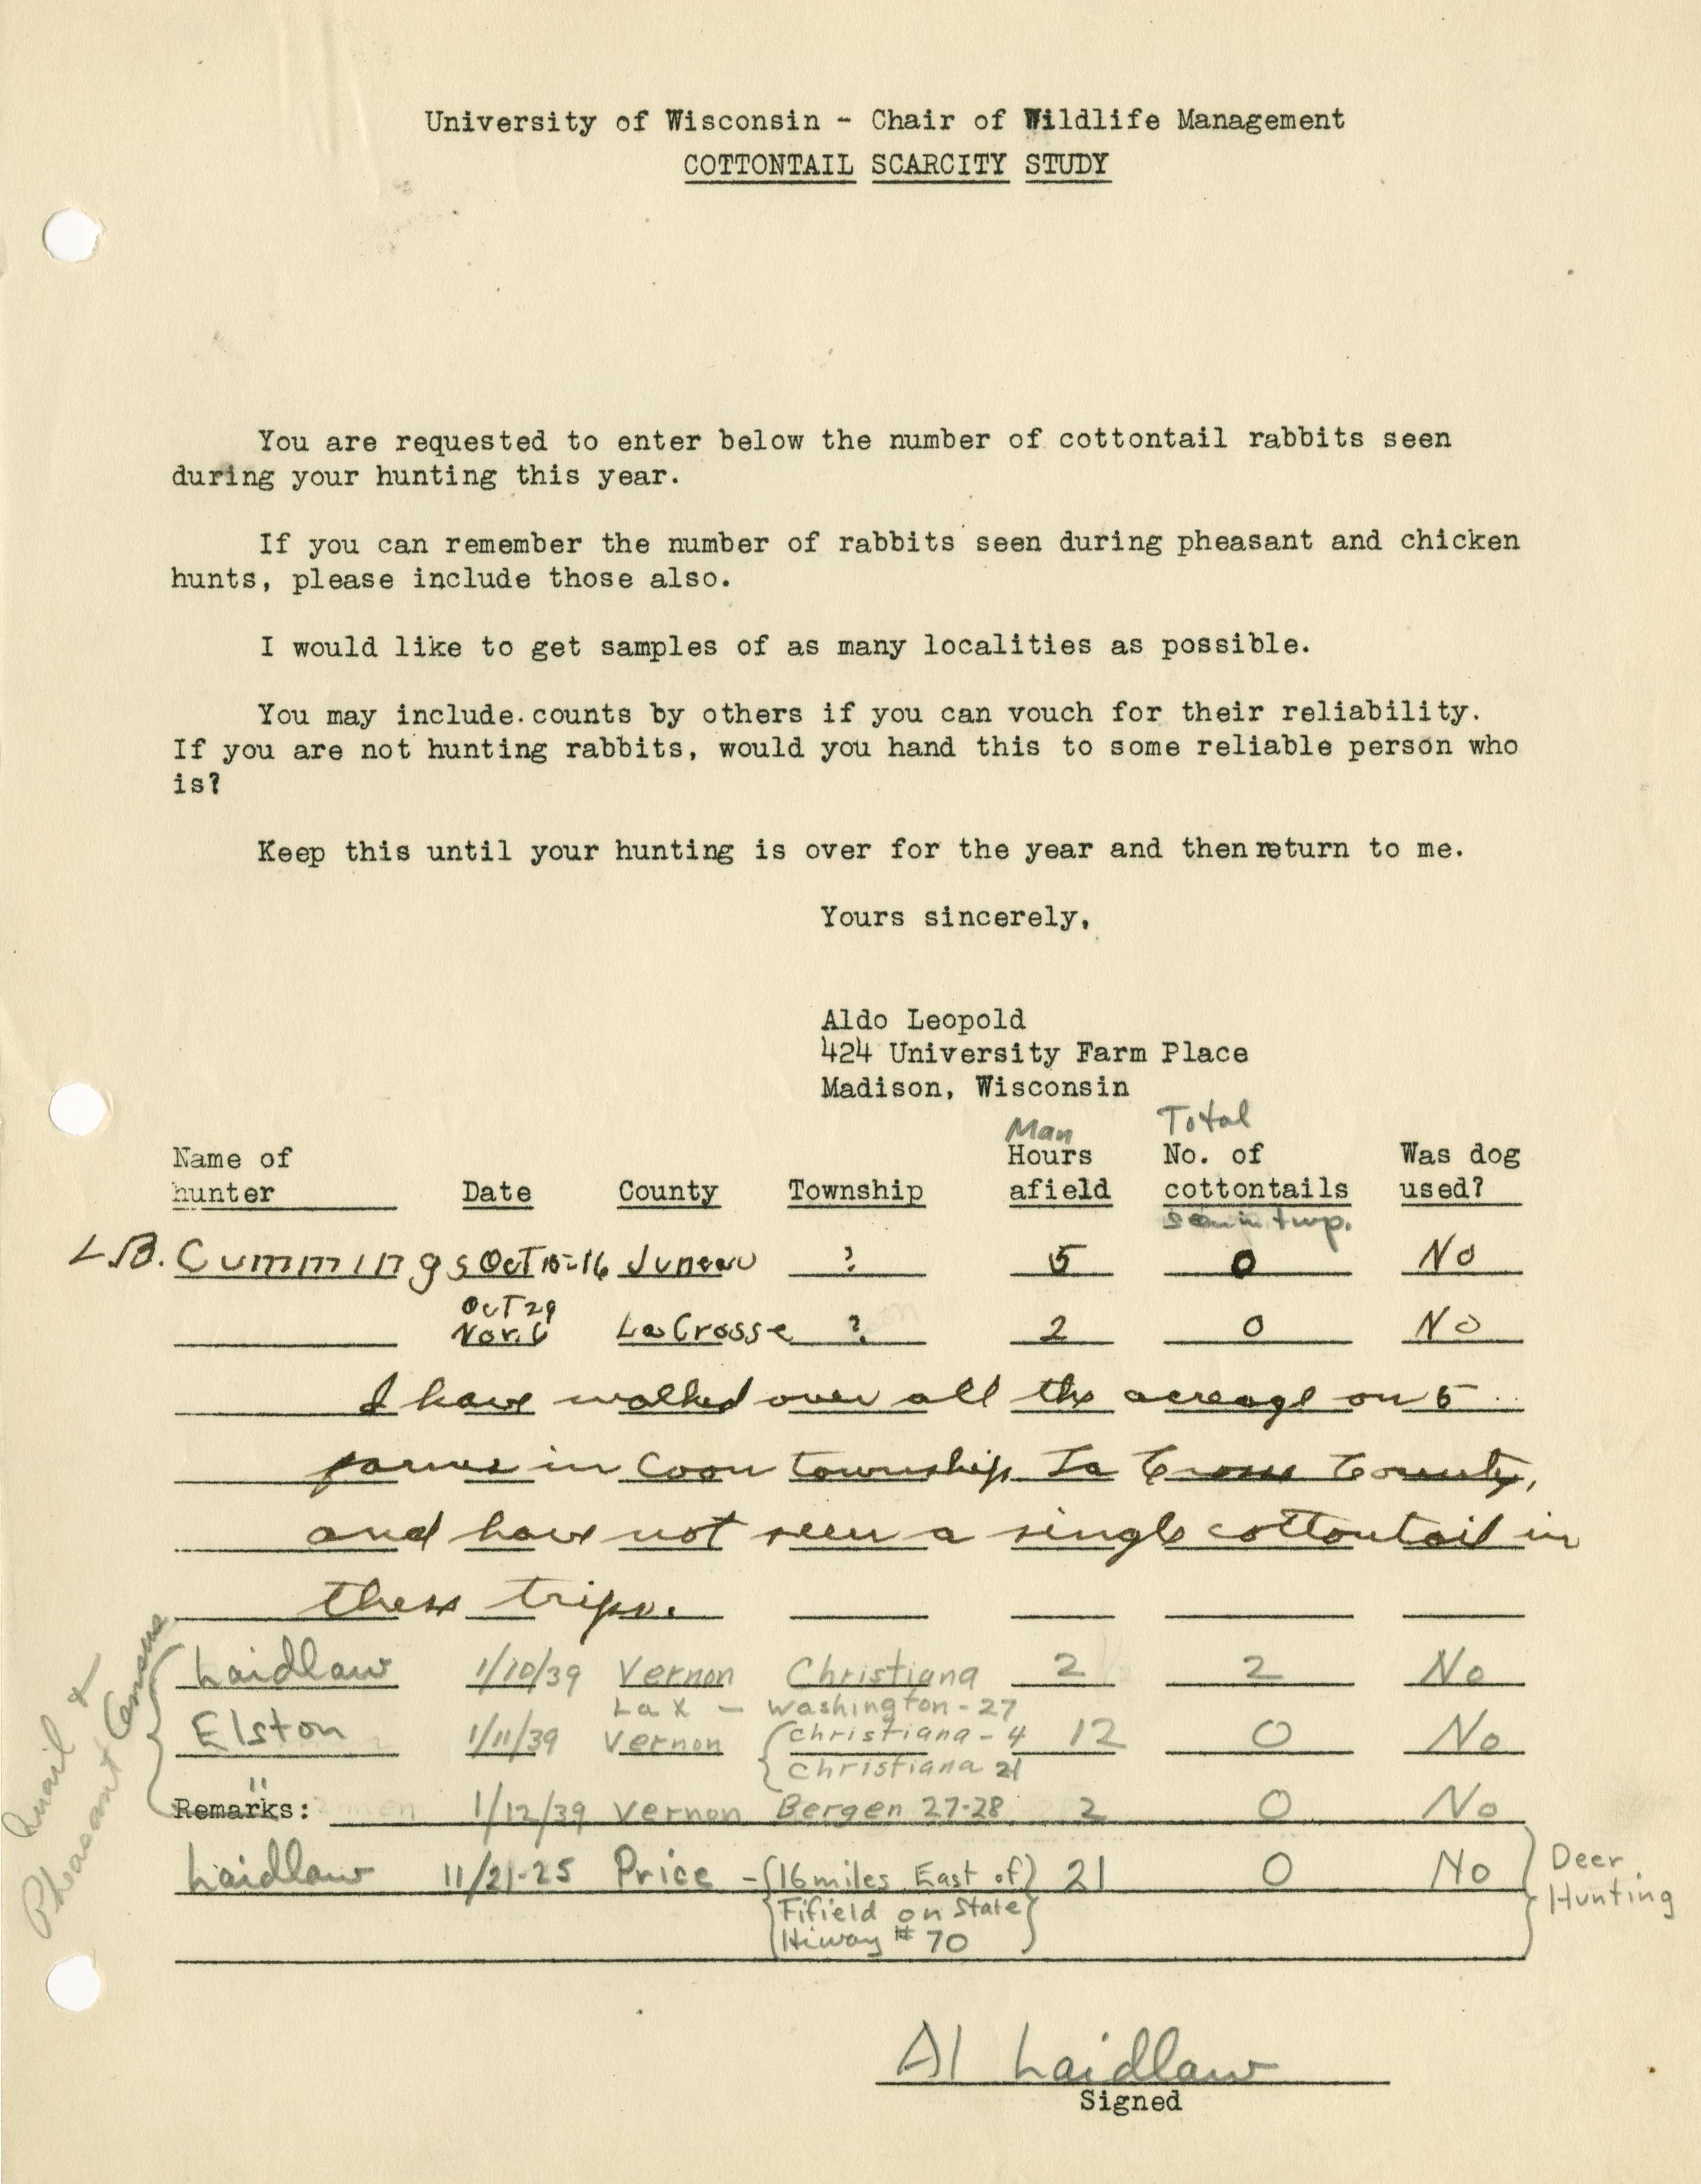 University of Wisconsin - Chair of Wildlife Management
COTTONTAIL SCARCITY STUDY
You are requested to enter below the number of cottontail rabbits seen
during your hunting this year.
If you can remember the number of rabbits seen during pheasant and chicken
hunts, please include those also.
I would like to get samples of as many localities as possible.
You may include counts by others if you can vouch for their reliability.
If you are not hunting rabbits, would you hand this to some reliable person who
is?
Keep this until your hunting is over for the year and then return to me.
Yours sincerely,
Aldo Leopold
424 University Farm Place
Madison, Wisconsin
Man Total
Name of Hours No. of Was dog
hunter Date County Township afield cottontails used?
seen in twp.
L.B. Cummings Oct 15-16 Juneau ? 5 0 No
Oct 29
Nov. 6 La Crosse ? 2 0 No
I have walked over all the acreage on 5
farms in Coon township La Cross County,
and have not seen a single cottontail in
these trips.
Quail &
Pheasant Census
Laidlaw 1/10/39 Vernon Christiana 2 2 No
La X - Washington - 27
Elston 1/11/39 Vernon Christiana - 4 12 0 No
Christiana 21
"
Remarks: 1/12/39 Vernon Bergen 27-28 2 0 No
Laidlaw 11/21-25 Price - (16 miles East of) 21 0 No Deer
Fifield on State Hunting
Hiway # 70
Al Laidlaw
Signed